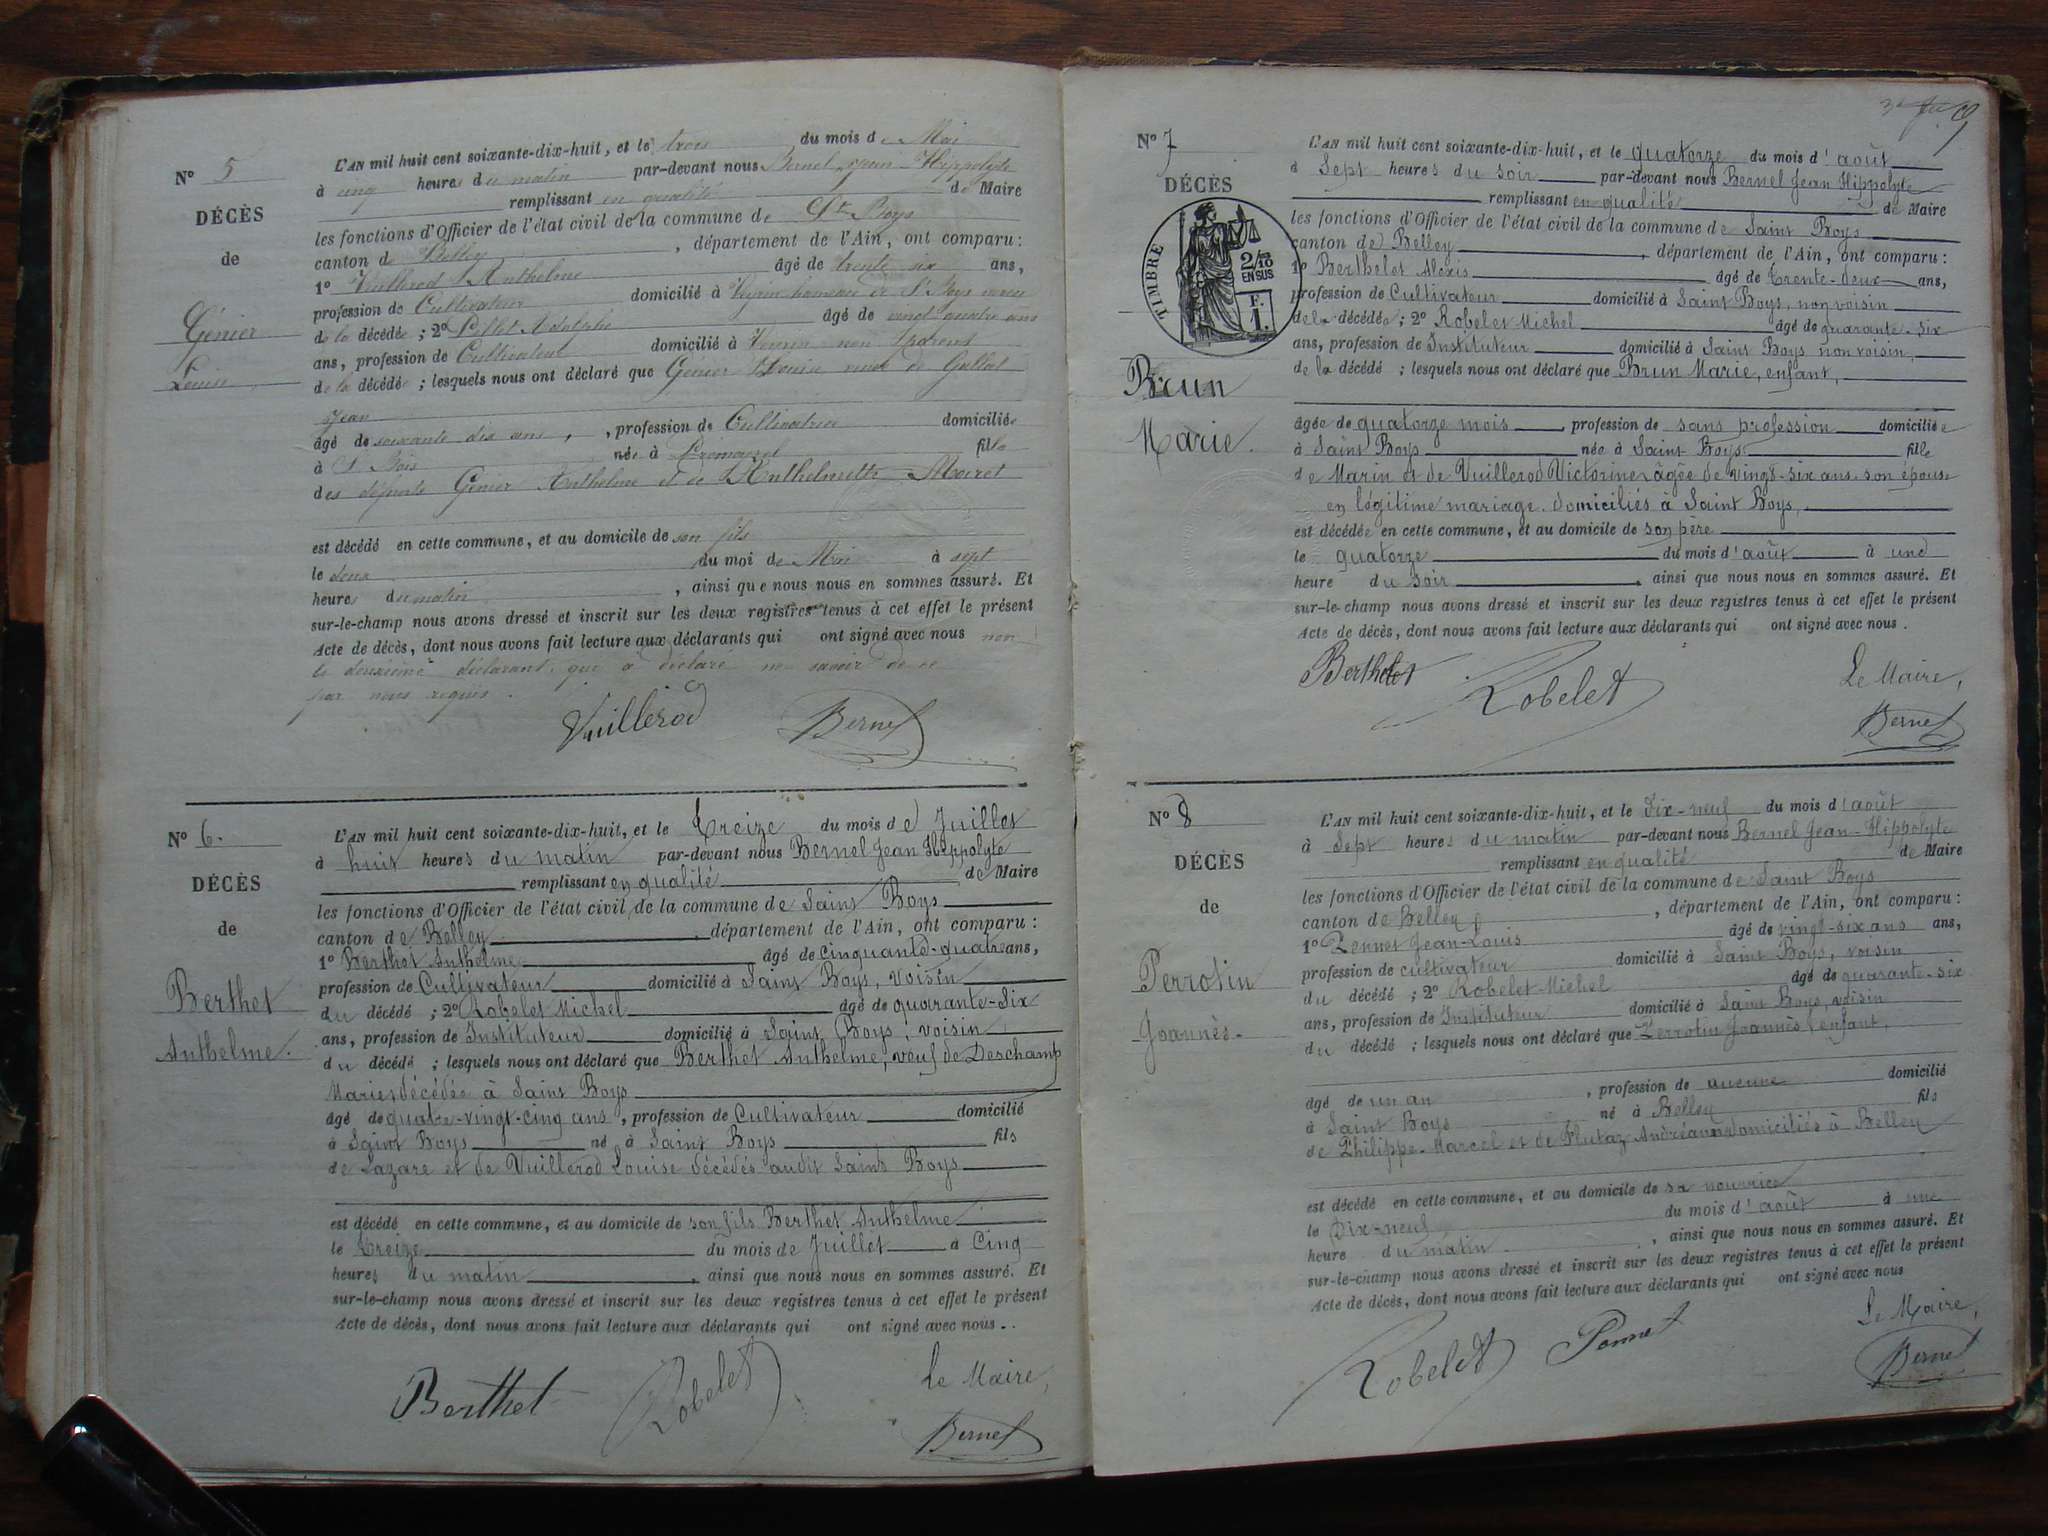 N° 5
DÉCÈS
de
Génier
Louise
L'AN mil huit cent soixante-dix-huit, et le trois du mois de Mai
à cinq heures du matin par-devant nous Bernel Jean Hippolyte
remplissant en qualité de Maire
les fonctions d'Officier de l'état civil de la commune de St Boys
canton de Belley, département de l'Ain, ont comparu :
1° Vuillerod Anthelme âgé de trente six ans,
profession de Cultivateur domicilié à hameau de St Boys
de la décédée ; 2° Adolphe âgé de vingt quatre ans
ans, profession de Cultivateur domicilié à non parent
de la décédée ; lesquels nous ont déclaré que Genier Louise veuve de Gallet
Jean
âgé de soixante dix ans, profession de Cultivatrice domiciliée
à St Bois née à fille
des défunts Genier Anthelme et de Anthelmette Moiret
est décédé en cette commune, et au domicile de son fils
le deux du moi de Mai à sept
heures du matin, ainsi que nous nous en sommes assuré. Et
sur-le-champ nous avons dressé et inscrit sur les deux registres tenus à cet effet le présent
Acte de décès, dont nous avons fait lecture aux déclarants qui ont signé avec nous non
le deuxième déclarant qui a déclaré ne savoir de ce
par nous requis.
Vuillerod Bernel
N° 6.
DÉCÈS
de
Berthet
Anthelme.
L'AN mil huit cent soixante-dix-huit, et le Treize du mois de Juillet
à huit heures du matin par-devant nous Bernel Jean Hippolyte
remplissant en qualité de Maire
les fonctions d'Officier de l'état civil de la commune de Saint Boys
canton de Belley, département de l'Ain, ont comparu :
1° Berthet Anthelme âgé de cinquante-quatre ans,
profession de Cultivateur domicilié à Saint Boys, voisin
du décédé ; 2° Robelet Michel âgé de quarante-six
ans, profession de Instituteur domicilié à Saint Boys, voisin,
du décédé ; lesquels nous ont déclaré que Berthet Anthelme, veuf de Deschamp
Marie, décédée à Saint Boys
âgé de quatre-vingt-cinq ans, profession de Cultivateur domicilié
à Saint Boys né à Saint Boys fils
de Lazare et de Vuillerod Louise décédés audit Saint Boys
est décédé en cette commune, et au domicile de son fils Berthet Anthelme
le Treize du mois de Juillet à Cinq
heures du matin, ainsi que nous nous en sommes assuré. Et
sur-le-champ nous avons dressé et inscrit sur les deux registres tenus à cet effet le présent
Acte de décès, dont nous avons fait lecture aux déclarants qui ont signé avec nous..
Berthet Robelet Le Maire,
Bernel
N° 7
DÉCÈS
TIMBRE
2/10
EN SUS
F.
1.
Brun
Marie.
L'AN mil huit cent soixante-dix-huit, et le quatorze du mois d'août
à Sept heures du soir par-devant nous Bernel Jean Hippolyte
remplissant en qualité de Maire
les fonctions d'Officier de l'état civil de la commune de Saint Boys
canton de Belley, département de l'Ain, ont comparu :
1° Berthelet Alexis âgé de Trente-deux ans,
profession de Cultivateur domicilié à Saint Boys, non voisin
de la décédée ; 2° Robelet Michel âgé de quarante-six
ans, profession de Instituteur domicilié à Saint Boys non voisin,
de la décédé ; lesquels nous ont déclaré que Brun Marie, enfant,
âgée de quatorze mois, profession de sans profession domiciliée
à Saint Boys née à Saint-Boys fille
de Marin et de Vuillerod Victorine, âgée de vingt-six ans son épouse
en légitime mariage, domiciliés à Saint Boys,
est décédée en cette commune, et au domicile de son père
le quatorze du mois d'août à une
heure du soir, ainsi que nous nous en sommes assuré. Et
sur-le-champ nous avons dressé et inscrit sur les deux registres tenus à cet effet le présent
Acte de décès, dont nous avons fait lecture aux déclarants qui ont signé avec nous.
Berthelet Robelet Le Maire,
Bernel
N° 8
DÉCÈS
de
Perrotin
Joannès.
L'AN mil huit cent soixante-dix-huit, et le Dix-neuf du mois d'août
à Sept heures du matin par-devant nous Bernel Jean-Hippolyte
remplissant en qualité de Maire
les fonctions d'Officier de l'état civil de la commune de Saint Boys
canton de Belley, département de l'Ain, ont comparu :
1° Pennet Jean-Louis âgé de vingt-six ans ans,
profession de cultivateur domicilié à Saint Boys, voisin
du décédé ; 2° Robelet Michel âgé de quarante-six
ans, profession de Instituteur domicilié à Saint Boys, voisin
du décédé ; lesquels nous ont déclaré que Perrotin Joannès, enfant,
âgé de un an, profession de aucune domicilié
à Saint Boys né à Belley fils
de Philippe-Marcel et de domiciliés à Belley
est décédé en cette commune, et au domicile de sa nourrice
le Dix-neuf du mois d'août à une
heure du matin, ainsi que nous nous en sommes assuré. Et
sur-le-champ nous avons dressé et inscrit sur les deux registres tenus à cet effet le présent
Acte de décès, dont nous avons fait lecture aux déclarants qui ont signé avec nous
Robelet Ponnet Le Maire,
Bernel